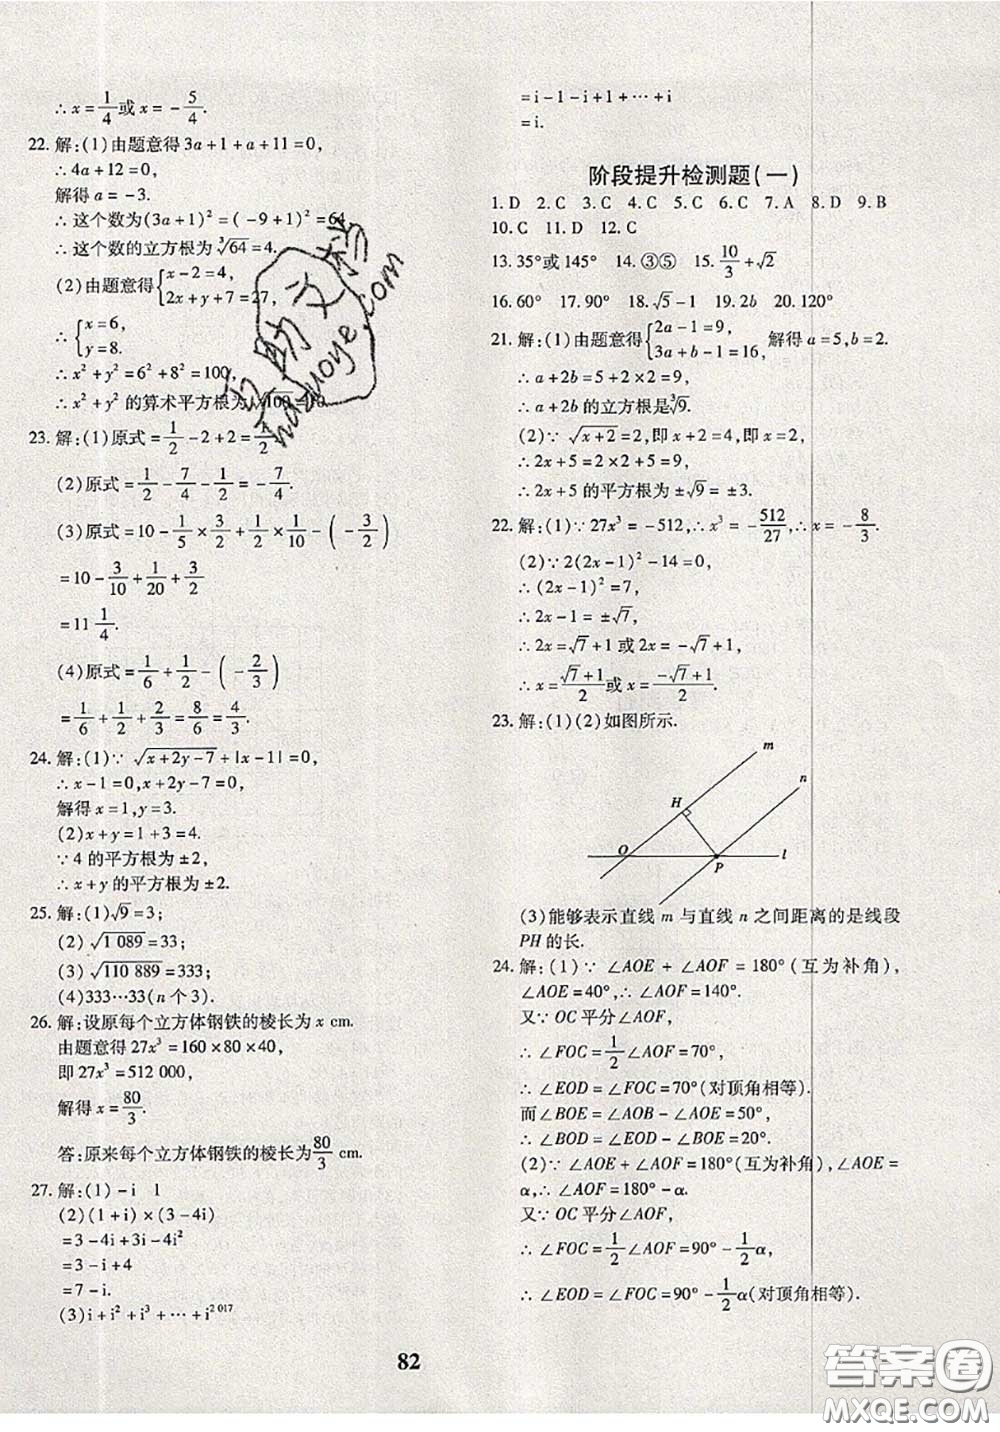 ∴ x = 1/4 或 x = -5/4.
22. 解:(1)由题意得 3a+1+a+11=0,
∴ 4a+12=0,
解得 a = -3.
∴ 这个数为(3a+1)²=(-9+1)²=64.
∴ 这个数的立方根为 ³√64=4.
(2)由题意得{x-2=4,
2x+y+7=27,
∴ {x=6,
y=8.
∴ x²+y²=6²+8²=100,
∴ x²+y² 的算术平方根为 √100=10.
23. 解:(1)原式=1/2-2+2=1/2.
(2)原式=1/2-7/4-1/2=-7/4.
(3)原式=10-1/5×3/2+1/2×1/10-(-3/2)
=10-3/10+1/20+3/2
=11 1/4.
(4)原式=1/6+1/2-(-2/3)
=1/6+1/2+2/3=8/6=4/3.
24. 解:(1)∵ √x+2y-7+|x-1|=0,
∴ x-1=0,x+2y-7=0,
解得 x=1,y=3.
(2)x+y=1+3=4.
∵ 4 的平方根为±2,
∴ x+y 的平方根为±2.
25. 解:(1)√9=3;
(2)√1 089=33;
(3)√110 889=333;
(4)333…33(n 个 3).
26. 解:设原每个立方体钢铁的棱长为 x cm.
由题意得 27x³=160×80×40,
即 27x³=512 000,
解得 x=80/3.
答:原来每个立方体钢铁的棱长为80/3 cm.
27. 解:(1)-i 1
(2)(1+i)×(3-4i)
=3-4i+3i-4i²
=3-i+4
=7-i.
(3)i+i²+i³+…+i²⁰¹⁷
=i-1-i+1+…+i
=i.
阶段提升检测题(一)
1. D 2. C 3. C 4. C 5. C 6. C 7. A 8. D 9. B
10. C 11. D 12. C
13. 35°或 145° 14. ③⑤ 15. 10/3+√2
16. 60° 17. 90° 18. √5-1 19. 2b 20. 120°
21. 解:(1)由题意得{2a-1=9,
3a+b-1=16, 解得 a=5,b=2.
∴ a+2b=5+2×2=9,
∴ a+2b 的立方根是³√9.
(2)∵ √x+2=2,即 x+2=4,即 x=2,
∴ 2x+5=2×2+5=9,
∴ 2x+5 的平方根为±√9=±3.
22. 解:(1)∵ 27x³=-512,∴ x³=-512/27,∴ x=-8/3.
(2)∵ 2(2x-1)²-14=0,
∴ (2x-1)²=7,
∴ 2x-1=±√7,
∴ 2x=√7+1 或 2x=-√7+1,
∴ x=√7+1/2 或 x=-√7+1/2.
23. 解:(1)(2)如图所示.
m
n
H
O
P
l
(3)能够表示直线 m 与直线 n 之间距离的是线段
PH 的长.
24. 解:(1)∵ ∠AOE+∠AOF=180°(互为补角),
∠AOE=40°,∴ ∠AOF=140°.
又∵ OC 平分∠AOF,
∴ ∠FOC=1/2∠AOF=70°,
∴ ∠EOD=∠FOC=70°(对顶角相等).
而∠BOE=∠AOB-∠AOE=50°,
∴ ∠BOD=∠EOD-∠BOE=20°.
(2)∵ ∠AOE+∠AOF=180°(互为补角),∠AOE=
α,∴ ∠AOF=180°-α.
又∵ OC 平分∠AOF,
∴ ∠FOC=1/2∠AOF=90°-1/2α,
∴ ∠EOD=∠FOC=90°-1/2α(对顶角相等).
82
答案卷
MXQE.COM